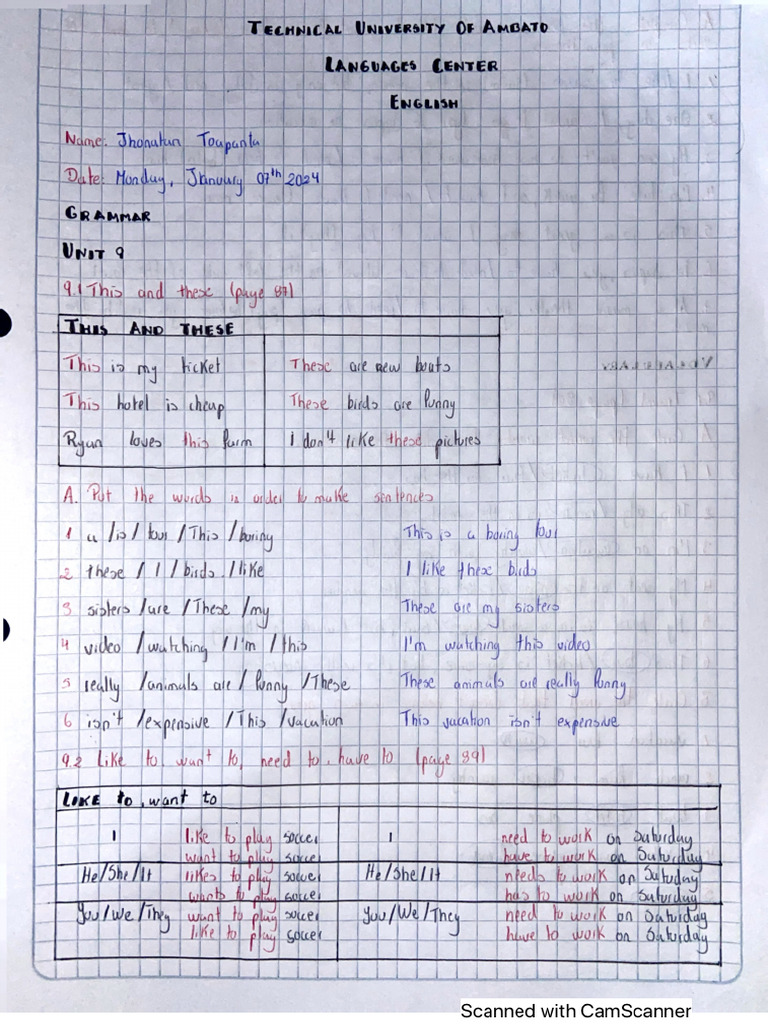 TECHNICAL UNIVERSITY OF AMBATO
LANGUAGES CENTER
ENGLISH
Name: Jhonatan Toapanta
Date: Monday, January 07th 2024
GRAMMAR
UNIT 9
9.1 This and these (page 87)
THIS AND THESE
This is my ticket These are new boats
This hotel is cheap These birds are funny
Ryan loves this farm I don't like these pictures
A. Put the words in order to make sentences
1 a / is / tour / This / boring This is a boring tour
2 these / I / birds. / like I like these birds
3 sisters / are / These / my These are my sisters
4 video / watching / I'm / this I'm watching this video
5 really / animals are / funny / These These animals are really funny
6 isn't / expensive / This / vacation This vacation isn't expensive
9.2 Like to, want to, need to, have to (page 89)
LIKE to, want to
I like to play soccer I need to work on Saturday
want to play soccer have to work on Saturday
He/She/It likes to play soccer He/She/It needs to work on Satuday
wants to play soccer has to work on Saturday
You/We/They want to play soccer You/We/They need to work on Saturday
like to play soccer have to work on Saturday
Scanned with CamScanner